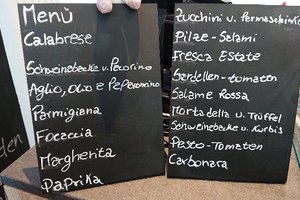 Menü
Calabrese
Schweinebacke u. Pecorino
Aglio, olio e Peperoncino
Parmigiana
Focaccia
Margherita
Paprika
Zucchini u. Parmaschinken
Pilze-Salami
Fresca Estate
Sardellen-tomaten
Salame Rossa
Mortadella u. Trüffel
Schweinebacke u. Kürbis
Pesto-Tomaten
Carbonara